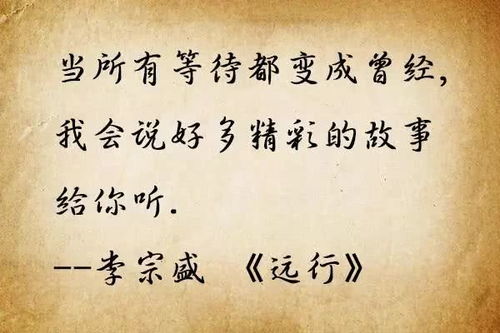 当所有等待都变成曾经，
我会说好多精彩的故事
给你听．
--李宗盛 《远行》